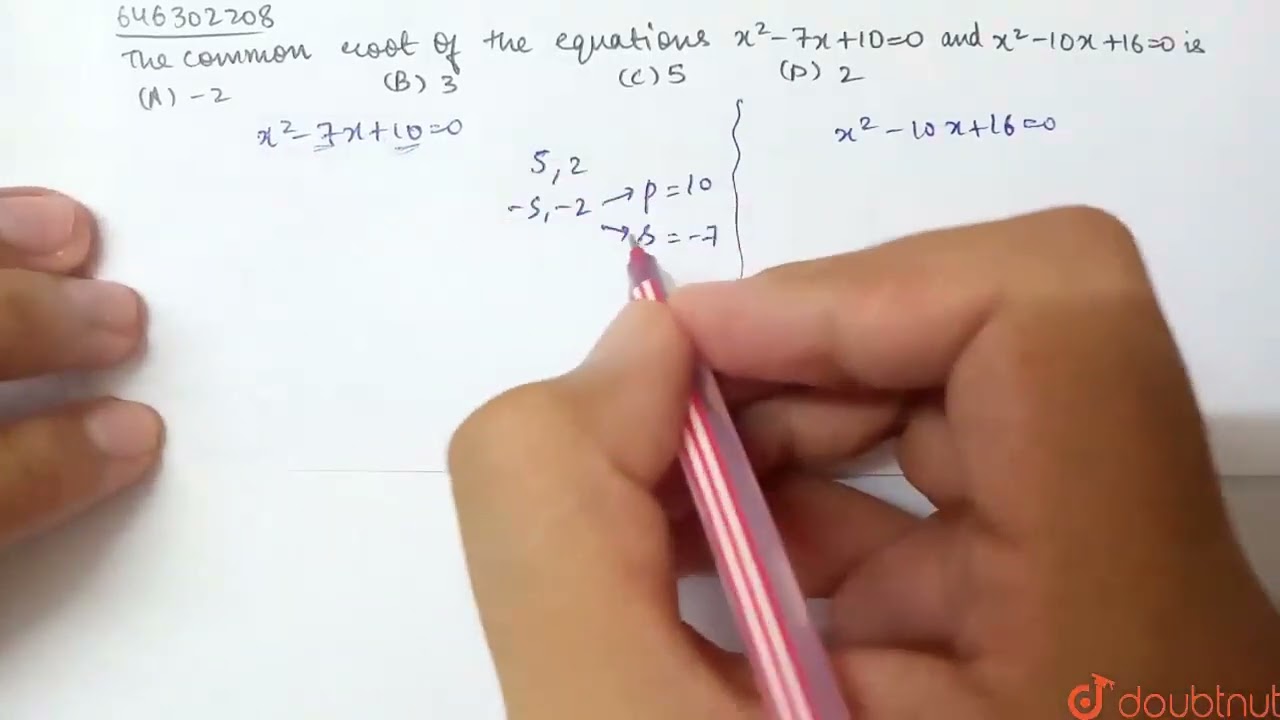 646302208
The common root of the equations x²-7x+10=0 and x²-10x+16=0 is
(A) -2 (B) 3 (C) 5 (D) 2
x²-7x+10=0
5,2
-5,-2 → p=10
→ s=-7
x²-10x+16=0
doubtnut